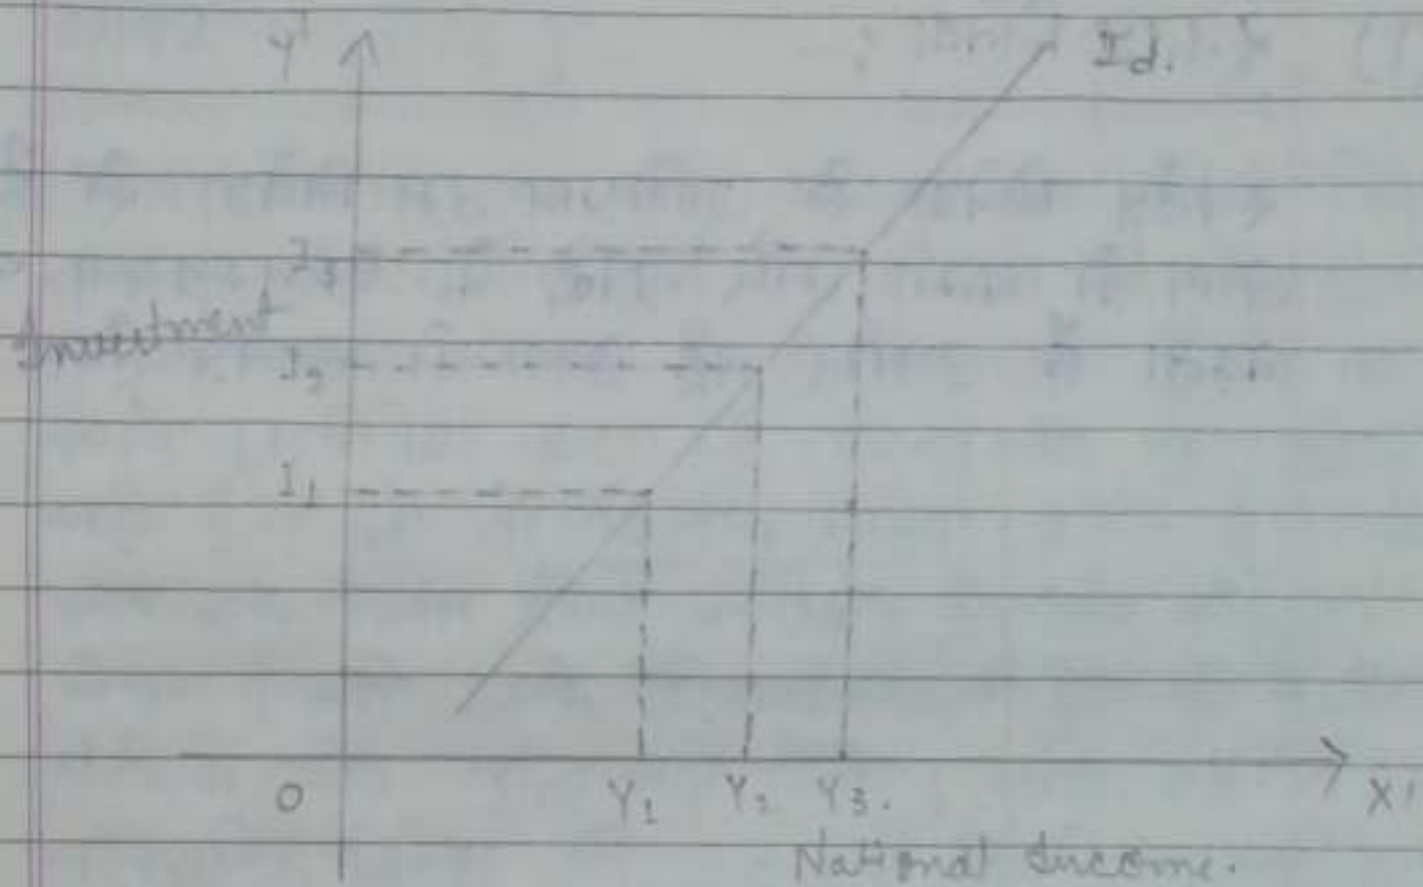 Y'
Id.
I3
Investment
I2
I1
O
Y1
Y2
Y3.
X'
National Income.